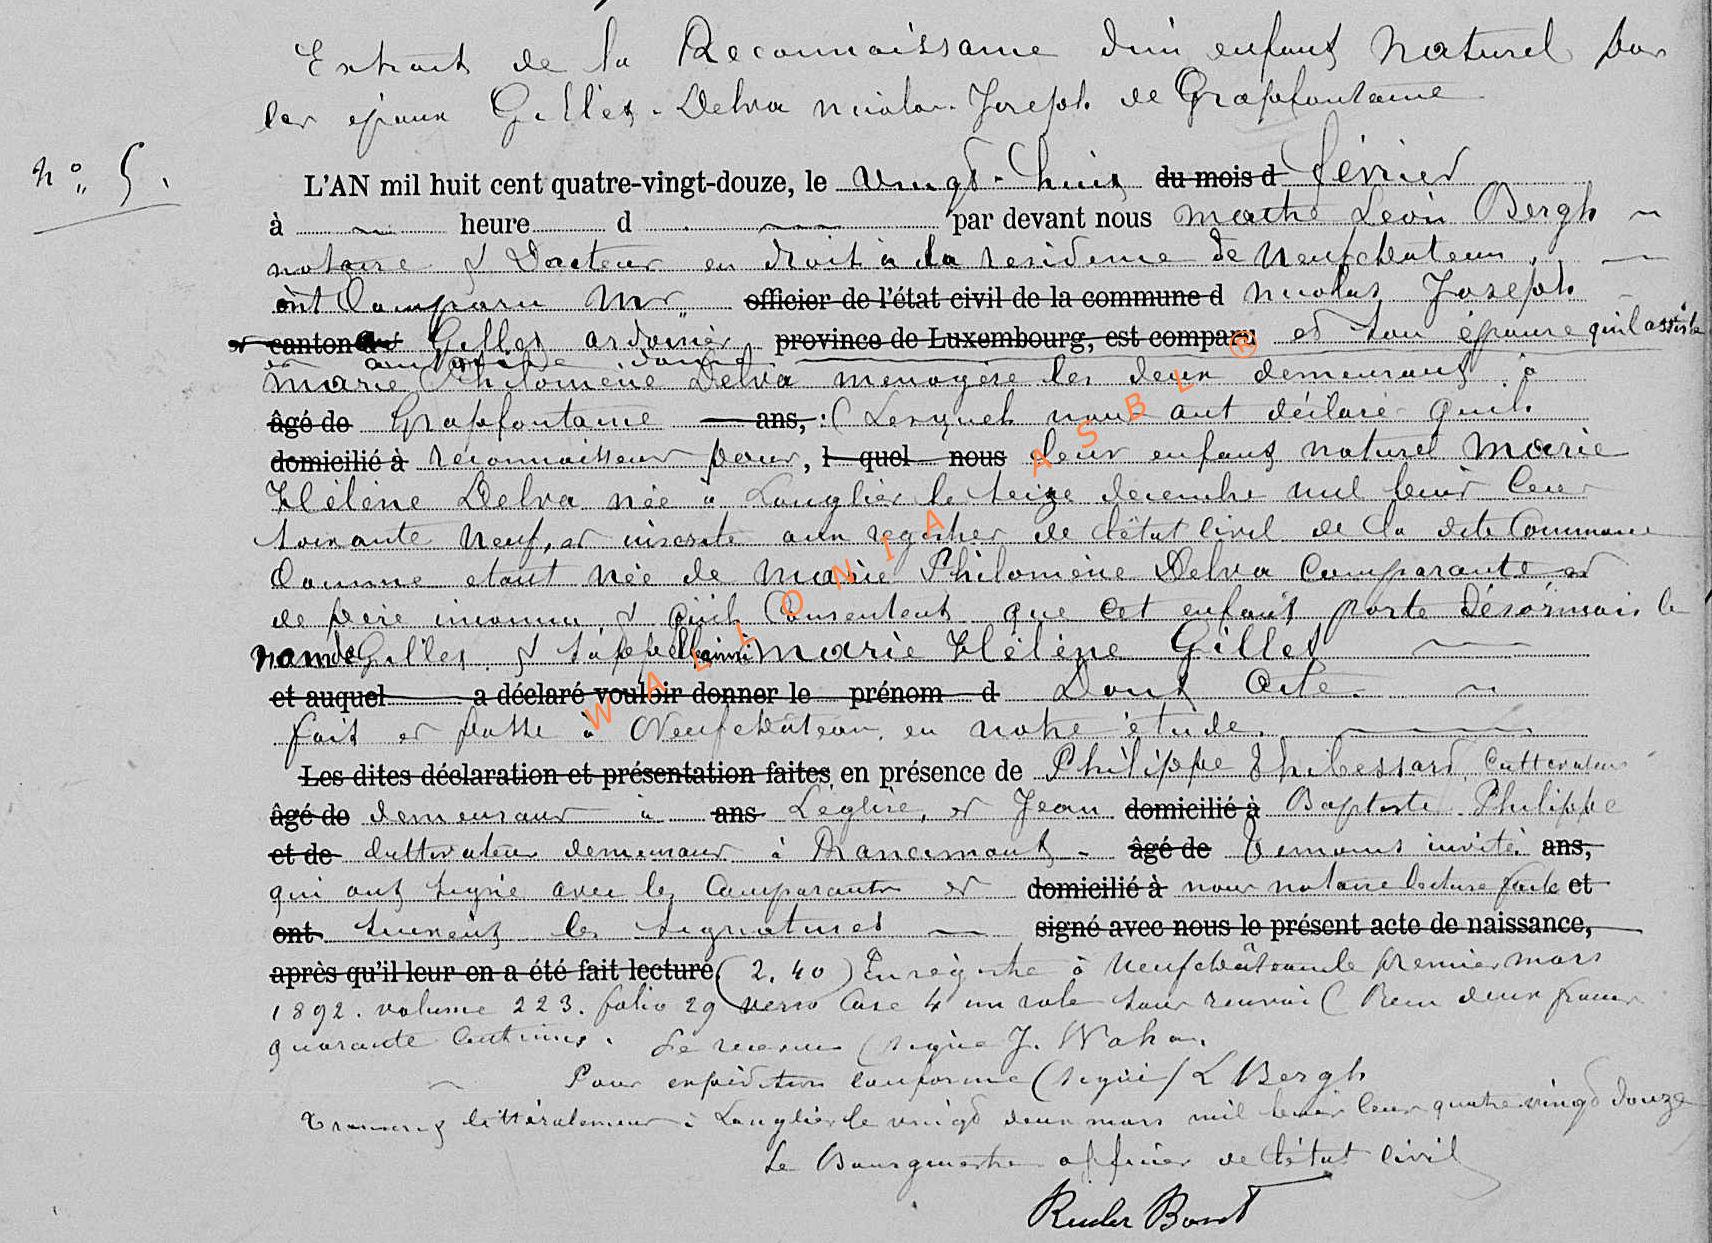 Extrait de la Reconnaissance d'un enfant Naturel par
les époux Gillet - Delva nicolas Joseph de Grapfontaine
n° 5.
L'AN mil huit cent quatre-vingt-douze, le vingt-huit du mois d février
à heure d par devant nous maitre Léon Bergh
notaire & Docteur en droit à la residence de Neufchateau,
ont Comparu Mr officier de l'état civil de la commune d nicolas Joseph
et canton d Gillet ardoisier province de Luxembourg, est comparu et son épouse qu'il assiste
et autorise dame
marie Philomène Delva menagère les deux demeurant à
âgé de Grapfontaine ans, : (Lesquels nous ont déclaré qu'ils
domicilié à reconnaissent pour, l quel nous leur enfant naturel Marie
Hélène Delva née à Longlier le seize décembre mil huit cent
soixante neuf, et inscrite aux registres de l'état civil de la dite Commune
Comme etant née de Marie Philomène Delva Comparante et
de père inconnu & qu'ils Consentent que cet enfant porte désormais le
nom de Gillet & s'appelle ainsi Marie Hélène Gillet
et auquel a déclaré vouloir donner le prénom d Dont Acte.
fait et passé à Neufchâteau, en notre étude.
Les dites déclaration et présentation faites en présence de Philippe Thibessart, Cultivateur
âgé de demeurant à ans Léglise, et Jean domicilié à Baptiste Philippe
et de Cultivateur demeurant à Mancimont - âgé de Temoins invités ans,
qui ont signé avec les Comparants et domicilié à nous notaire lecture faite et
ont suivent les signatures signé avec nous le présent acte de naissance,
après qu'il leur en a été fait lecture (2.40) Enregistré à Neufchâteau le premier mars
1892. volume 223. folio 29 verso Case 4 un role sans renvoi (Recu deux francs
quarante Centimes. Le receveur (signé J. Wahа.
Pour expédition conforme (signé) L Bergh
Transcrit littéralement à Longlier le vingt deux mars mil huit cent quatre vingt douze
Le Bourgmestre officier de l'état civil
WALLONIA ASBL ®